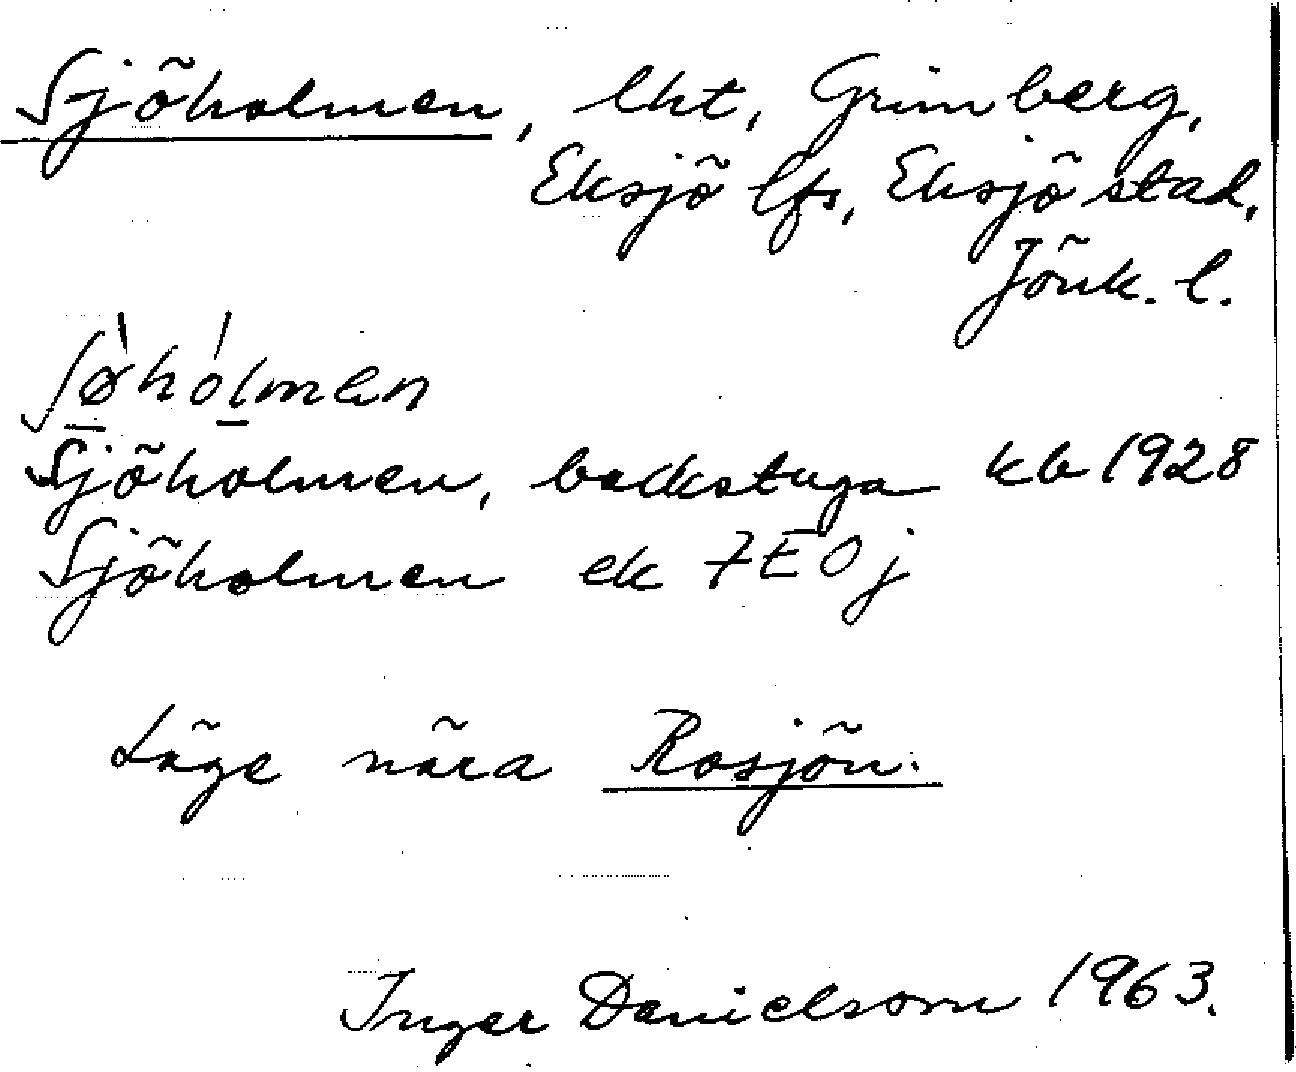 Sjöholmen, lht, Grimberg,
Eksjö lfs, Eksjö stad,
Jönk. l.
Sjöholmen, backstuga kb 1928
Sjöholmen ek 7E0j
Läge nära Rosjön.
Inger Danielsson 1963.